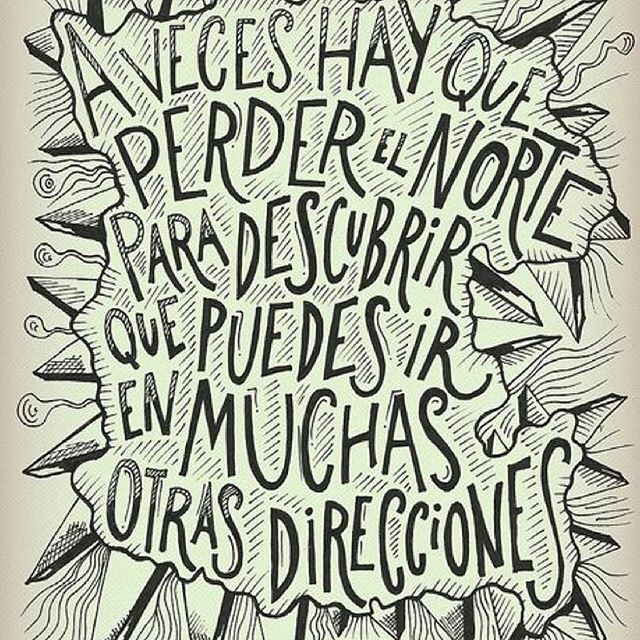 A VECES HAY QUE
PERDER EL NORTE
PARA DESCUBRiR
QUE PUEDES iR
EN MUCHAS
OTRAS DiRECCiONES